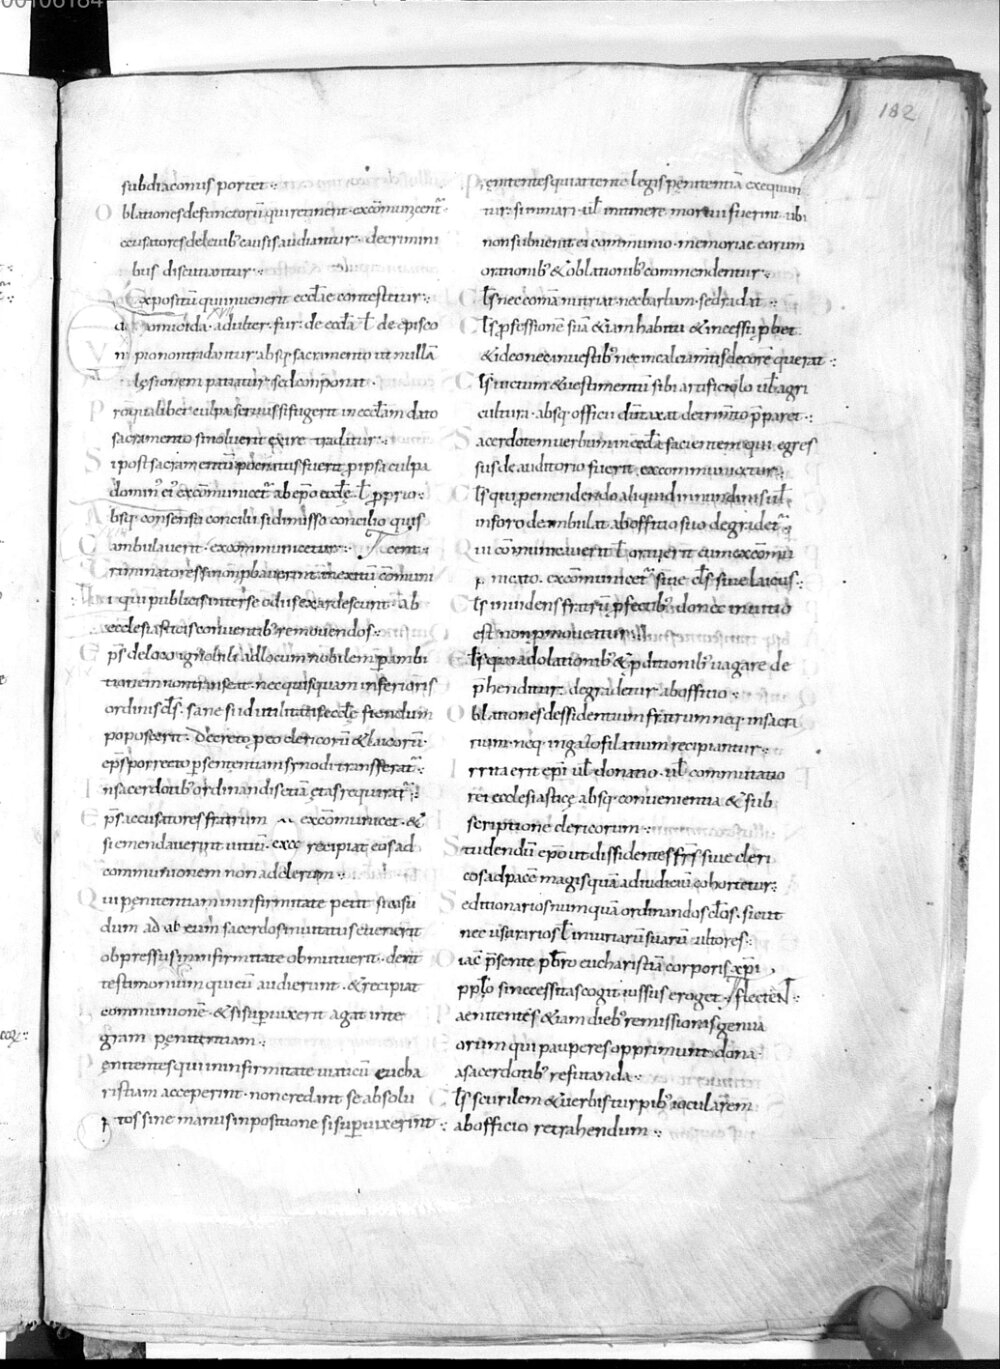 00106184
182
subdiaconus portet:
Oblationes defunctorū qui retinent excōmunicent᷑
accusatores deleuib; causis audiantur. de crimini
bus discutiantur:
Expositū qui inuenerit eccl̄ae contestetur:
omicida. adulter. fur. de eccl̄a ł de episco
pio non tradantur absq; sacramento ut nullā
lęsionem patiatur sed componat.
Pro qualibet culpa seruus si fugerit in eccl̄am dato
sacramento si noluerit exire traditur:
Si post sacramentū punitus fuerit p ipsa culpa
domin; ei; excōmunicet᷑ ab ep̄o eccl̄ę ł p̄prio:
absq; consensu concilii. si dimisso concilio quis
ambulauerit. excommunicetur:
Criminatores si non pbauerint in exitū cōmuni
i qui publicis inter se odiis exardescunt. ab
ecclesiasticis conuentib; remouendos:
Ep̄s de loco ignobili ad locum nobilem p ambi
tionem non transeat. nec quisquam inferioris
ordinis cl̄s. sane si id utilitatis eccl̄ę fiendum
poposcerit. decreto p eo clericorū & laicorū
ep̄s porrecto p sententiam synodi transferat᷑:
In sacerdotib; ordinandis etiā ętas requirat᷑:
Ep̄s accusatores fratrum excōmunicet. &
si emendauerint uitiū. recipiat eos ad
communionem non ad clerum:
Qui penitentiam in infirmitate petit si casu
dum ad eum sacerdos inuitatus euenerit
obpressus infirmitate obmutuerit. dent
testimonium qui eū audierunt. & recipiat
communionē. & si supuixerit agat inte
gram penitentiam:
Penitentes qui in infirmitate uiaticū eucha
ristiam acceperint. non credant se absolu
tos sine manus inpositione si supuixerint:
Penitentes qui attente leges penitentiā exequun
tur. si in mari. ul̄ in itinere mortui fuerint ubi
non subuenit ei communio. memoriae eorum
orationib; & oblationib; commendentur:
Cl̄s nec comā nutriat. nec barbam. sed radat:
Cl̄s pfessionē suā etiam habitu & incessu pbet
& ideo nec in uestib; nec in calciamtis decorē querat:
Cl̄s uictum & uestimentū sibi artificiolo ul̄ agri
cultura. absq; officii dūtaxat detrimto p̄paret:
Sacerdotem uerbum in eccl̄a facientem qui egres
sus de auditorio fuerit. excommunicetur:
Cl̄s qui p emendendo aliquid in nundinis ul̄
in foro deambulat. ab officio suo degradet᷑
Qui cōmunicauerit ł orauerit cum excōmu
nicato. excōmunicet᷑ siue cl̄s siue laicus:
Cl̄s inuidens fratrū pfectib; donec in uitio
est non pmoueatur:
Cl̄s qui adolationib; & pditionib; uagare de
phenditur. degradetur ab officio:
Oblationes dessidentium fratrum neq; in sacra
rium. neq; in gazofilatium recipiantur:
Irrita erit ep̄i ul̄ donatio. ul̄ commutatio
rei ecclesiasticę absq; conuenientia & sub
scriptione clericorum:
Studendū ep̄o ut dissidentes fr̄s siue cleri
cos ad pacē magis quā ad iudiciū cohortetur:
Seditionarios numquā ordinandos cl̄os. sicut
nec usurarios ł iniuriarū suarū ultores:
iac p̄sente p̄b̄ro eucharistiā corporis xp̄i
pp̄lo si necessitas cogit iussus eroget:
Paenitentes etiam dieb; remissionis genua
eorum qui pauperes opprimunt. dona
a sacerdotib; refutanda:
Cl̄s scurilem & uerbis turpib; ioculārem
ab officio retrahendum: